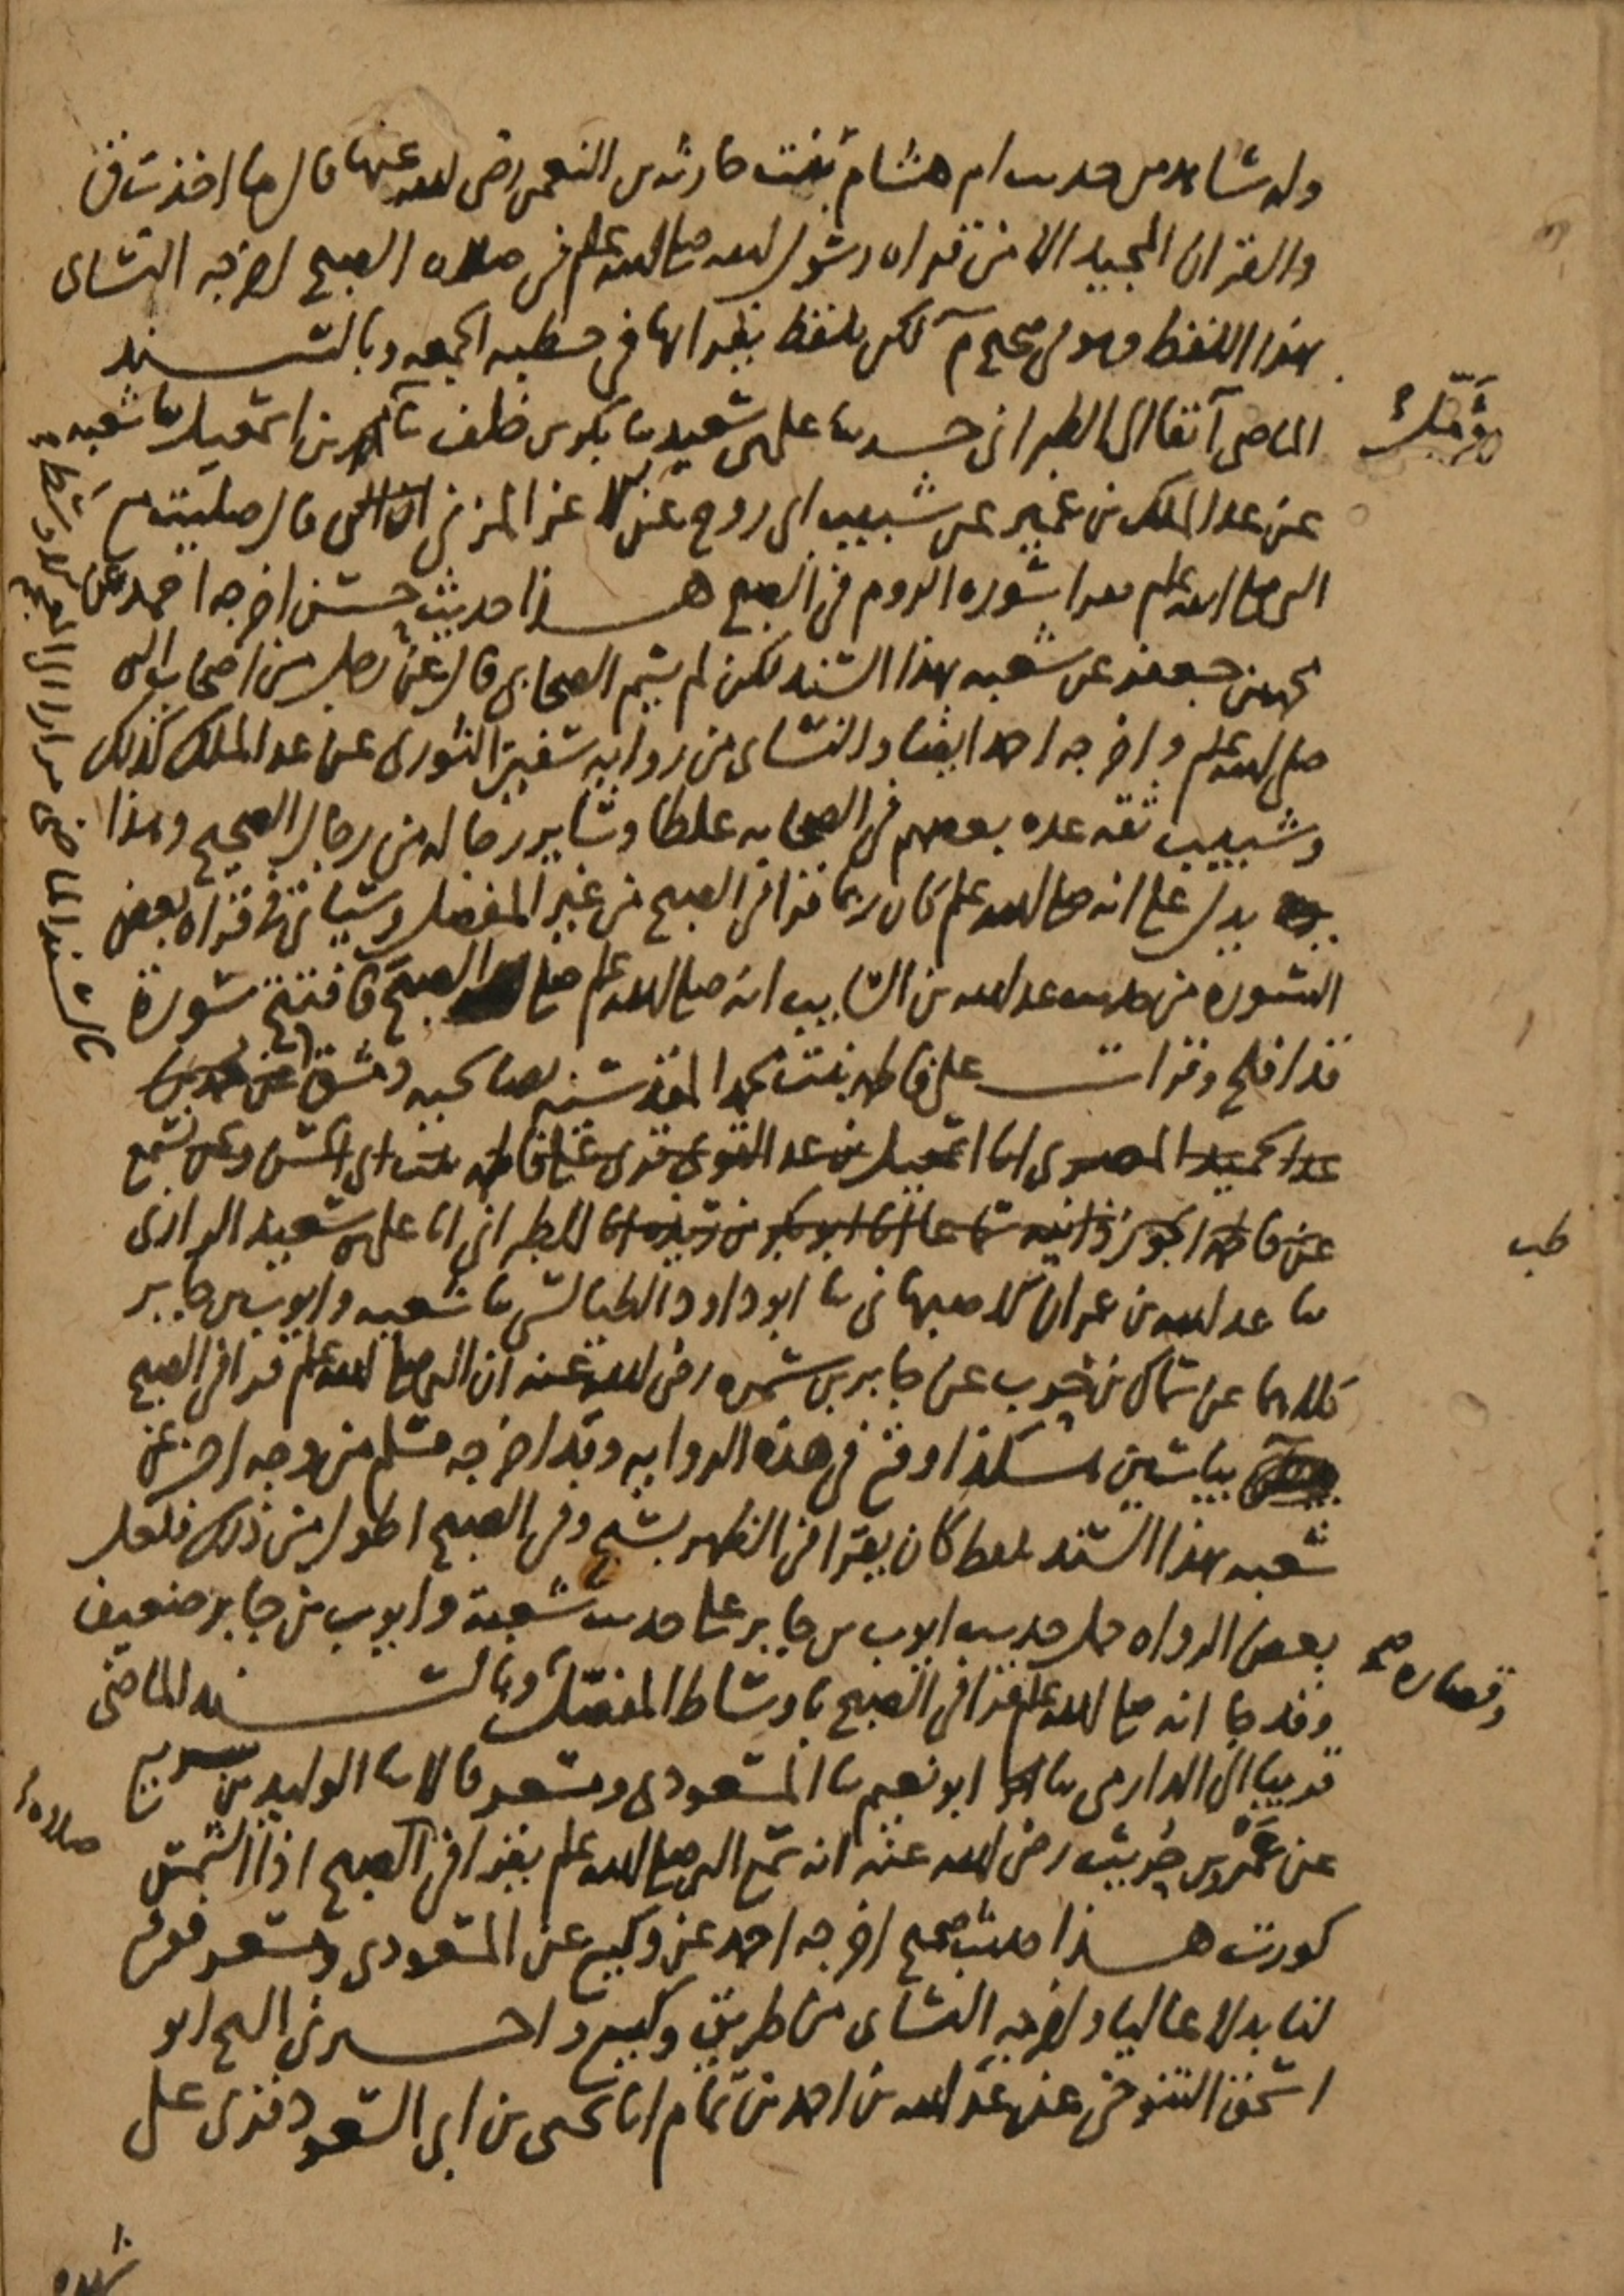 وله شاهد من حديث ام هشام بنت حارثه بن النعمن رضي الله عنها قال ما اخذت ق
والقران المجيد الا من قراه رسول الله صلى الله علم في صلاه الصبح اخرجه النساى
بهذا اللفظ وهو في صحيح م لكن بلفظ يقراها في خطبه الجمعه وبالسند
الماضي آنفا الى الطبراني حدثنا على بن سعيد ثنا بكر بن خلف ثنا مومل بن اسمعيل ثنا شعبه
عن عبد الملك بن عمير عن شبيب ابى روح عن الاغر المزنى قال صليت مع
النبي صلى الله علم فقرا سوره الروم في الصبح هذا حديث حسن اخرجه احمد عن
محمد بن جعفر عن شعبه بهذا السند لكن لم يسم الصحابى قال عن رجل من اصحاب النبى
صلى الله علم واخرجه احمد ايضا والنساى من روايه سفين الثورى عن عبد الملك كذلك
وشبيب ثقه عده بعضهم في الصحابه غلطا وساير رجاله من رجال الصحيح وهذا
يدل على انه صلى الله علم كان ربما قرا في الصبح من غير المفصل وسياتى في قراه بعض
السوره من حديث عبد الله بن السايب انه صلى الله علم صلى الصبح فافتتح سورة
قد افلح وقرات على فاطمه بنت محمد المقدسيه بصالحيه دمشق عن محمد بن
عبد الحميد المصرى انا اسمعيل بن عبد القوى قرى على فاطمه بنت ابى الحسن ونحن نسمع
عن فاطمه الجوزذانيه سماعا انا ابو بكر بن ريذه انا الطبرانى انا على بن سعيد الرازى
ثنا عبد الله بن عمران الاصبهانى ثنا ابو داود الطيالسى ثنا شعبه وايوب بن جابر
كلاهما عن سماك بن حرب عن جابر بن سمره رضي الله عنه ان النبى صلى الله علم قرا في الصبح
بياسين هكذا وقع في هذه الروايه وقد اخرجه مسلم من وجه اخر عن
شعبه بهذا السند بلفظ كان يقرا في الظهر بسبح وفى الصبح اطول من ذلك فلعل
بعض الرواه حمل حديث ايوب بن جابر على حديث شعبة وايوب بن جابر ضعيف
وقد جا انه صلى الله علم قرا في الصبح باوساط المفصل وبالسند الماضى
وقصاره صح
قريبا الى الدارمى ثنا ابو نعيم ثنا المسعودى ومسعر قالا ثنا الوليد بن سريع
عن عمرو بن حريث رضي الله عنه انه سمع النبى صلى الله علم يقرا في الصبح اذا الشمس
كورت هذا حديث صحيح اخرجه احمد عن وكيع عن المسعودى ومسعر فوقع
لنا بدلا عاليا واخرجه النساى من طريق وكيع واخبرنى الشيخ ابو
اسحق التنوخى عن عبد الله بن احمد بن تمام انا يحيى بن ابى السعود قرى على
شهده
طب
صلاه
مومل